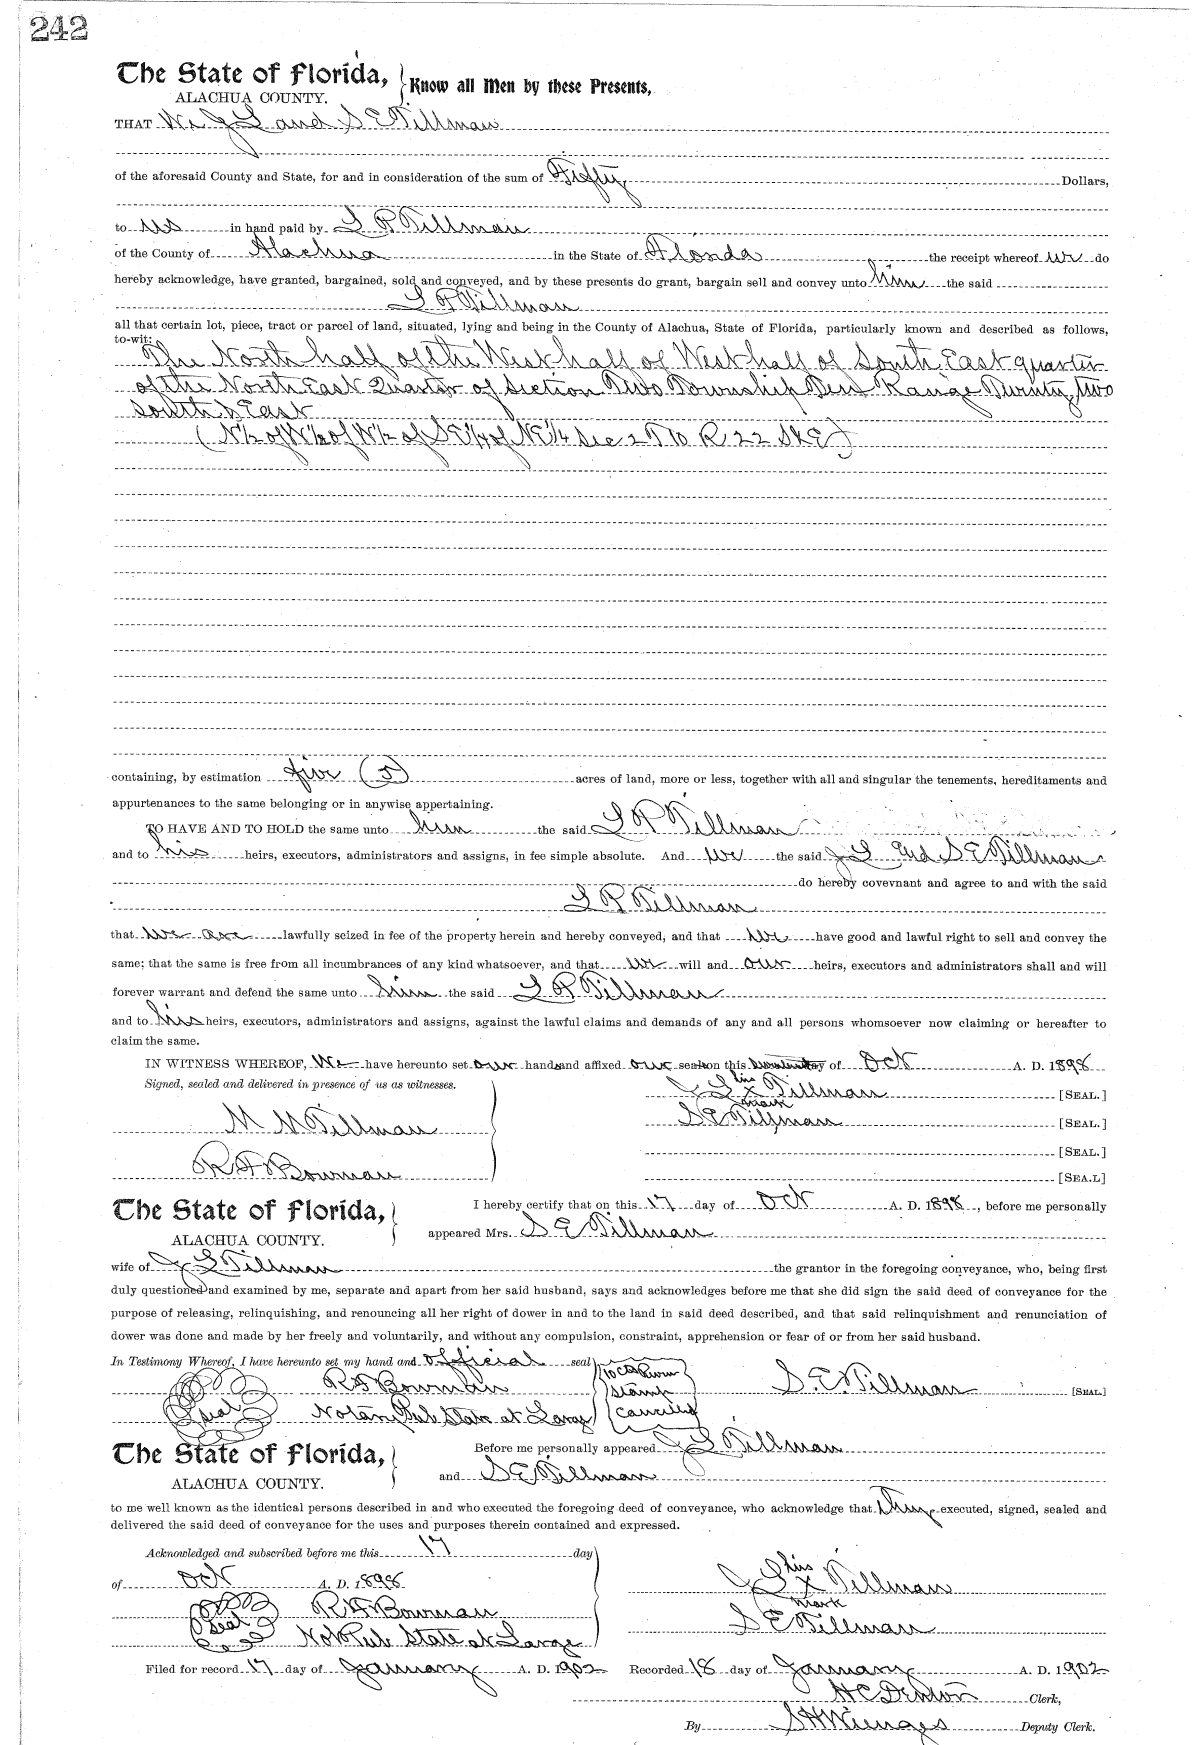 242
The State of Florida, Know all Men by these Presents,
ALACHUA COUNTY.
THAT We J L and S E Tillman
of the aforesaid County and State, for and in consideration of the sum of Fifty Dollars,
to us in hand paid by L P Tillman
of the County of Alachua in the State of Florida the receipt whereof we do
hereby acknowledge, have granted, bargained, sold and conveyed, and by these presents do grant, bargain sell and convey unto him the said
L P Tillman
all that certain lot, piece, tract or parcel of land, situated, lying and being in the County of Alachua, State of Florida, particularly known and described as follows,
to-wit:
The North half of the West half of West half of South East quarter
of the North East Quarter of Section Two Township Ten Range Twenty two
South & East
(N½ of W½ of W½ of SE¼ of NE¼ Sec 2 T 10 R. 22 S&E)
containing, by estimation five (5) acres of land, more or less, together with all and singular the tenements, hereditaments and
appurtenances to the same belonging or in anywise appertaining.
TO HAVE AND TO HOLD the same unto him the said L P Tillman
and to his heirs, executors, administrators and assigns, in fee simple absolute. And we the said J L and S E Tillman
do hereby covevnant and agree to and with the said
L P Tillman
that we are lawfully seized in fee of the property herein and hereby conveyed; and that we have good and lawful right to sell and convey the
same; that the same is free from all incumbrances of any kind whatsoever, and that we will and our heirs, executors and administrators shall and will
forever warrant and defend the same unto him the said L P Tillman
and to his heirs, executors, administrators and assigns, against the lawful claims and demands of any and all persons whomsoever now claiming or hereafter to
claim the same.
IN WITNESS WHEREOF, We have hereunto set our hands and affixed our seals on this day of Oct A. D. 1898
Signed, sealed and delivered in presence of us as witnesses.
his
J L X Tillman [SEAL.]
mark
M M Tillman S E Tillman [SEAL.]
[SEAL.]
R F Bowman [SEA.L]
The State of Florida, I hereby certify that on this 17 day of Oct A. D. 1898, before me personally
ALACHUA COUNTY. appeared Mrs. S E Tillman
wife of J L Tillman the grantor in the foregoing conveyance, who, being first
duly questioned and examined by me, separate and apart from her said husband, says and acknowledges before me that she did sign the said deed of conveyance for the
purpose of releasing, relinquishing, and renouncing all her right of dower in and to the land in said deed described, and that said relinquishment and renunciation of
dower was done and made by her freely and voluntarily, and without any compulsion, constraint, apprehension or fear of or from her said husband.
In Testimony Whereof, I have hereunto set my hand and official seal
10 ct Revenue
R F Bowman stamp S. E. Tillman [SEAL.]
Seal Notary Pub State at Large canceled
The State of Florida, Before me personally appeared J L Tillman
ALACHUA COUNTY. and S E Tillman
to me well known as the identical persons described in and who executed the foregoing deed of conveyance, who acknowledge that they executed, signed, sealed and
delivered the said deed of conveyance for the uses and purposes therein contained and expressed.
Acknowledged and subscribed before me this 17 day
of Oct A. D. 1898
his
J L X Tillman
mark
R F Bowman S E Tillman
Seal Not Pub State at Large
Filed for record 17 day of January A. D. 1902 Recorded 18 day of January A. D. 1902
H C Denton Clerk,
By S H Wienges Deputy Clerk.